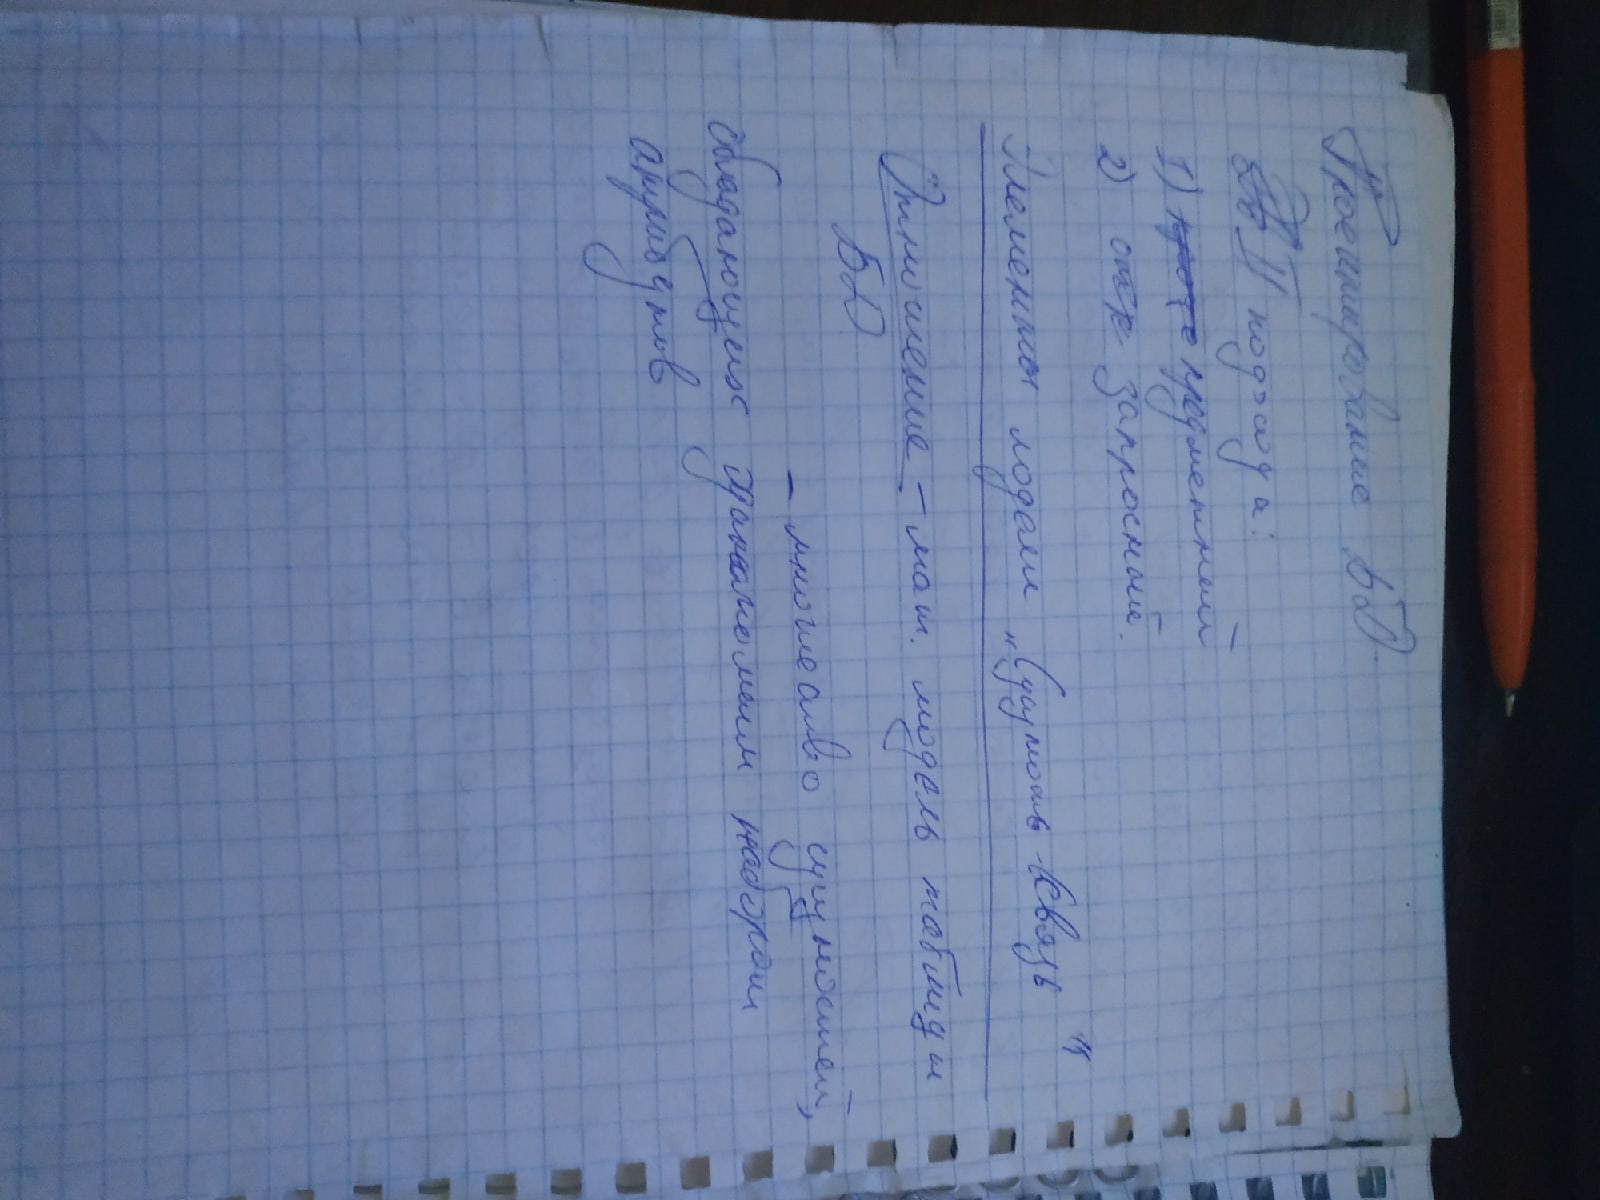 Проектирование БД.
II подхода:
1) предметный
2) запросный.
Элементы модели „Сущность-связь"
Отношение – мат. модель таблицы
БД.
– множество сущностей,
обладающих одинаковым набором
атрибутов